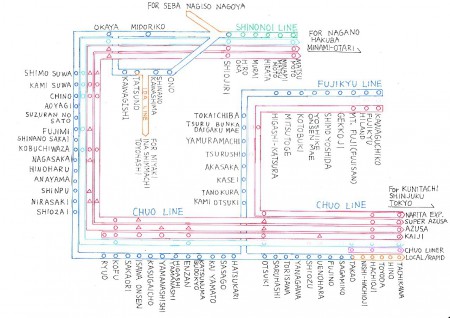 FOR SEBA NAGISO NAGOYA
OKAYA
MIDORIKO
SHINONOI LINE
FOR NAGANO
HAKUBA
MINAMI-OTARI
SHIOJIRI
HIRO OKA
MURAI
HIRATA
MINAMI MATSUMOTO
MATSUMOTO
SHIMO SUWA
KAMI SUWA
CHINO
AOYAGI
SUZURAN NO SATO
FUJIMI
SHINANO SAKAI
KOBUCHIWAZA
NAGASAKA
HINOHARU
ANAYAMA
SHINPU
NIRASAKI
SHIOZAKI
KAWAGISHI
TATSUNO
SHINANO KAWASHIMA
ONO
FOR MIYAKI
INA SHINMACHI
TOYOHASHI
FUJIKYU LINE
TOKAICHIBA
TSURU BUNKA DAIGAKU MAE
YAMURAMACHI
TSURUSHI
AKASAKA
KASEI
TANOKURA
KAMI OTSUKI
HIGASHI-KATSURA
MITSUTOGE
KOTOBUKI
YOSHIIKE ONSEN MAE
SHIMO YOSHIDA
GEKKOJI
MT. FUJI (FUJISAN)
FUJIKYU HILAND
KAWAGUCHIKO
CHUO LINE
CHUO LINE
FOR KUNITACHI
SHINJUKU
TOKYO
NARITA EXP.
SUPER AZUSA
AZUSA
KAIJI
CHUO LINER
LOCAL/RAPID
RYUO
KOFU
SAKAORI
ISAWA ONSEN
KASUGAICHO
YAMANASHISHI
HIGASHI YAMANASHI
ENZAN
KATSUNUMA BUDOKYO
KAI YAMATO
SASAGO
HATSUKARI
OTSUKI
SARUHASHI
TORISAWA
YANAGAWA
SHIOTSU
UENOHARA
FUJINO
SAGAMIKO
TAKAO
NISHI-HACHIOJI
HACHIOJI
TOYODA
HINO
TACHIKAWA